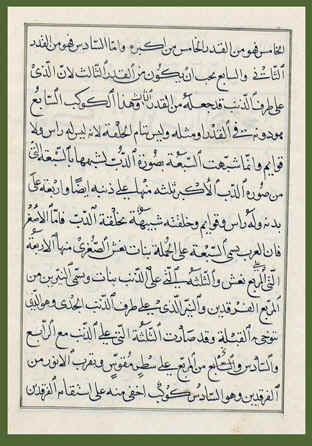 الخامس فهو من القدر الخامس من اكبره واما السادس فهو من القدر
الثالث والسابع يجب ان يكون من القدر الثالث لان الذى
على طرف الذنب قد جعله من القدر وهذا الكوكب السابع
هو دونه فى القدر ومثله وليس تام الخلقة لانه ليس له راس ولا
قوايم وانما شبهت السبعة بصورة الدب لشبهها بالسبعة التى
من صورة الدب الاكبر ثلثه منها على ذنبه ايضا واربعة على
بدنه وله راس وقوايم وخلقته شبيهة بخلقة الدب فاما الاصغر
فان العرب تسمى السبعة على الجملة بنات نعش الصغرى منها الاربعة
التى على المربع نعش والثلثة التى على الذنب بنات وتسمى النيرين من
المربع الفرقدين والنير الذى على طرف الذنب الجدى وهو الذى
تتوخى به القبلة وقد صارت الثلثة التى على الذنب مع الرابع
والسادس والسابع من المربع على سطر مقوس وبقرب الانور من
الفرقدين وهو السادس كوكب اخفى منه على استقامة الفرقدين